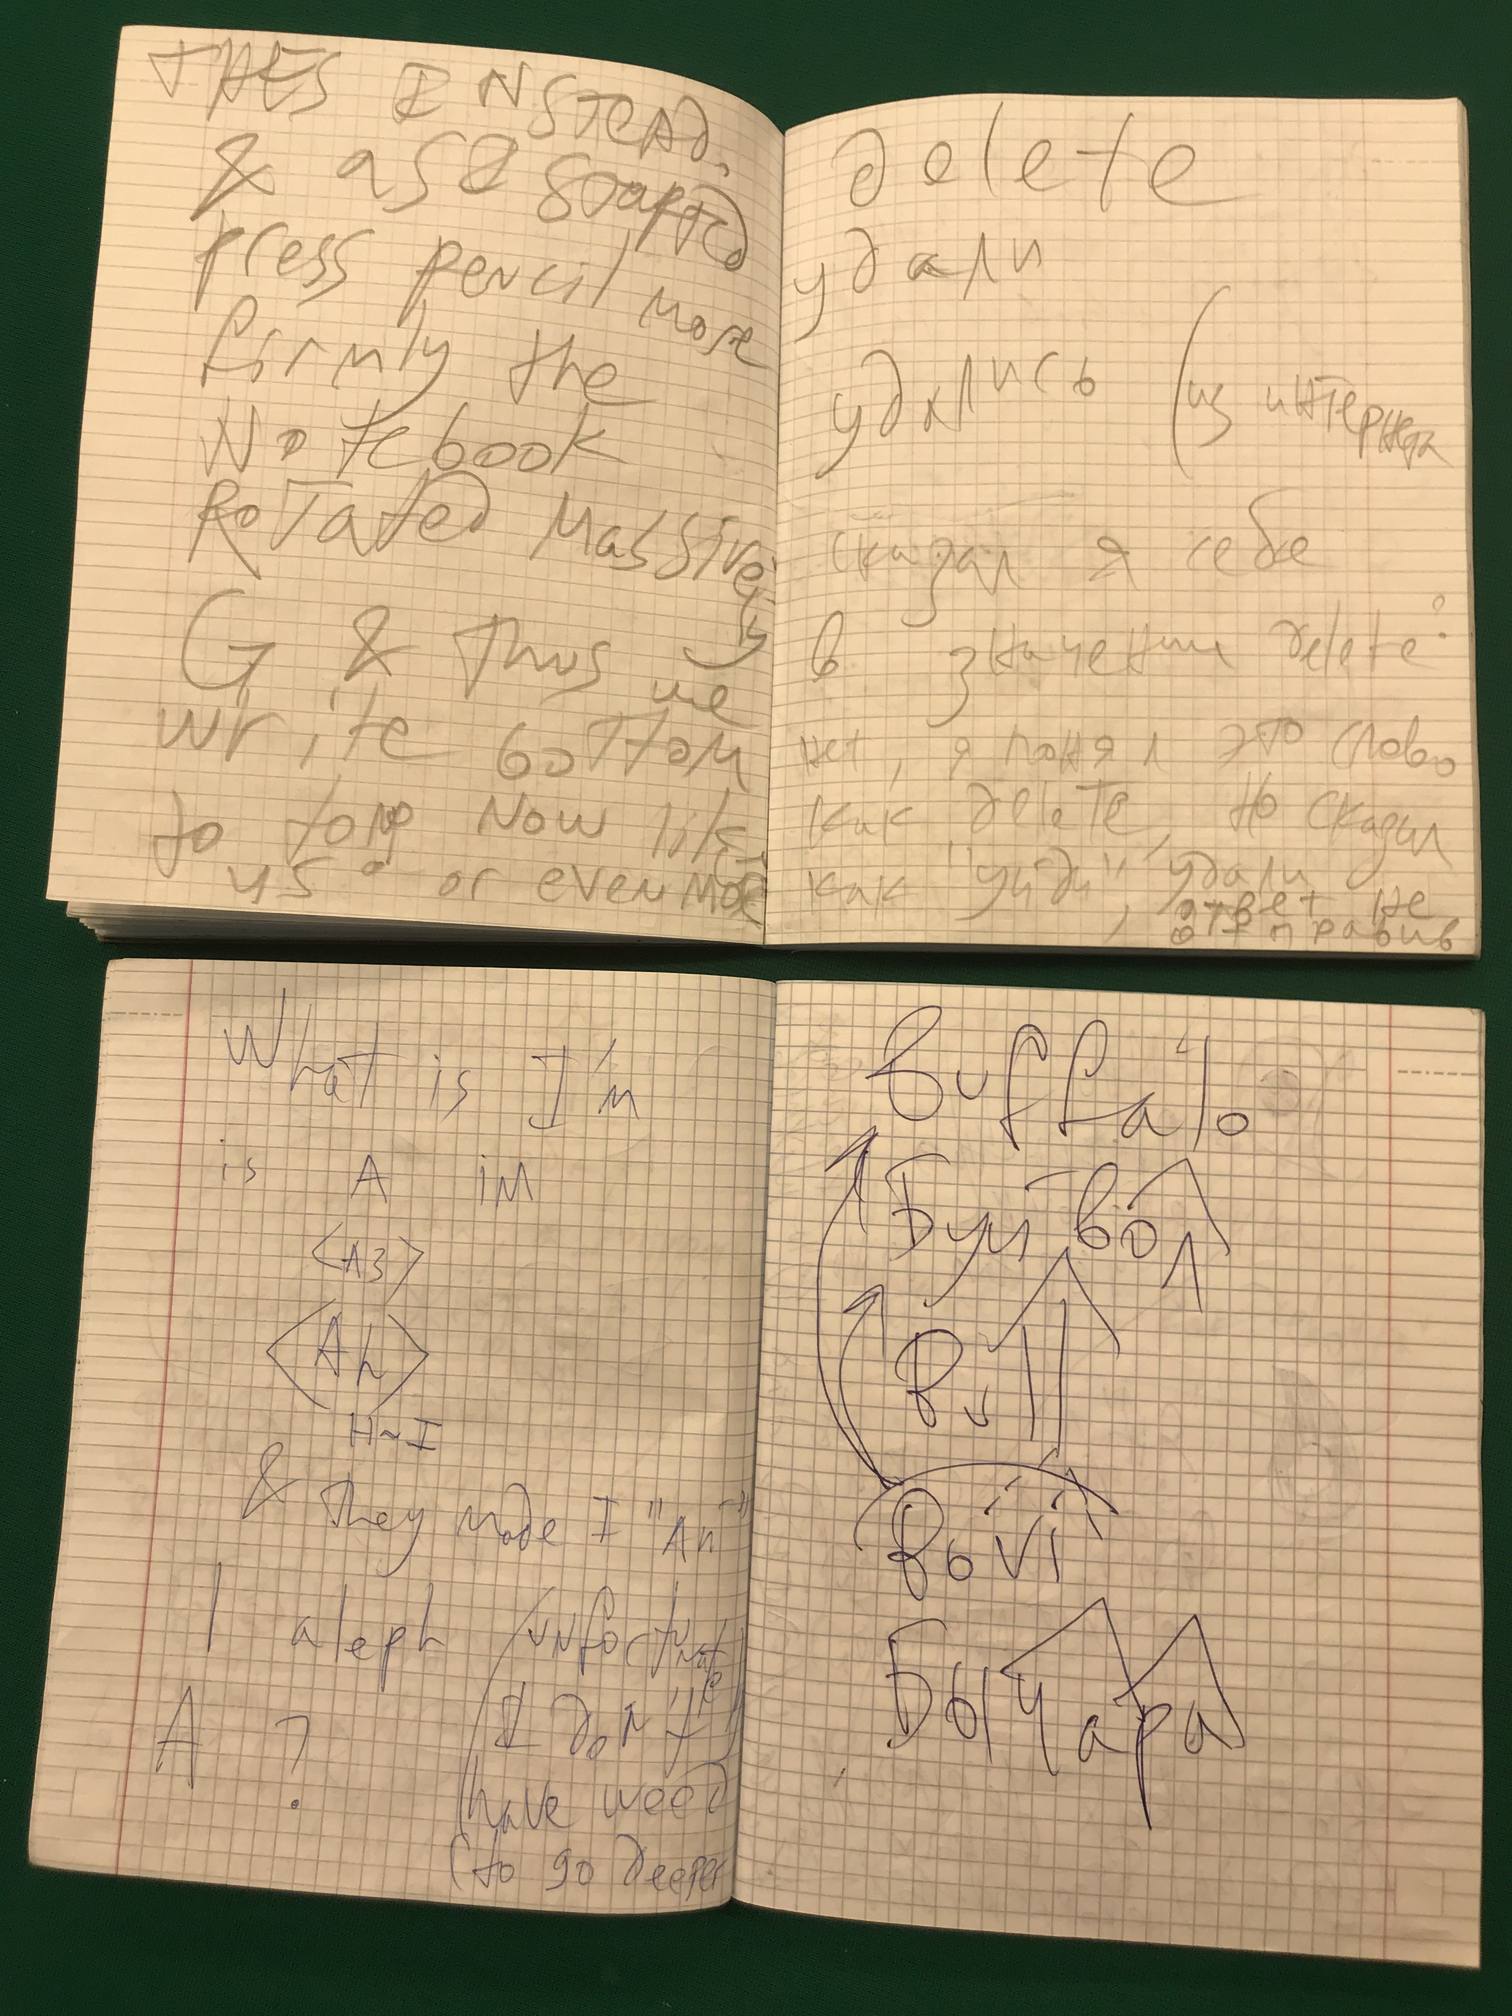 THES INSTEAD.
& as I Started
press pencil more
firmly the
Notebook
Rotated Massive
ly
G & Thus we
write bottom
to top Now like
us or even more
delete
удали
удались (из интернета
сказал я себе
в значении delete
нет, я понял это слово
как delete, но сказал
как "уйди", удали
ответ не
отправив
What is I'm
is A im
<A3>
<Ah>
H~I
& They made I "An"
I aleph (unfortunate
I don't
A ? have weed
(to go deeper
Buffalo
Буйвол
Bull
Воÿї
Бычара